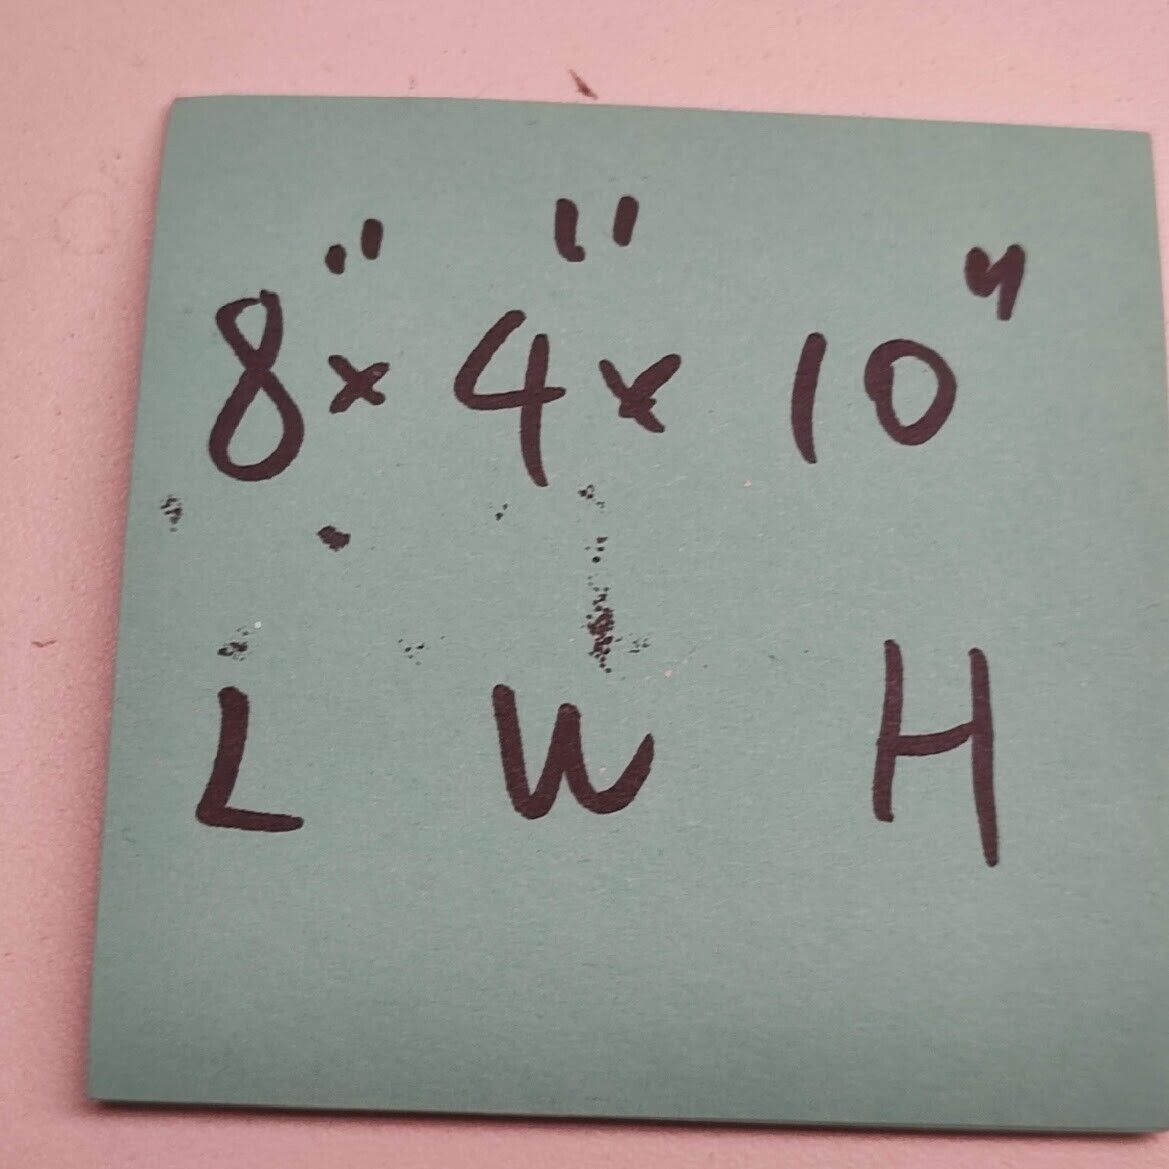 8" x 4" x 10"
L W H